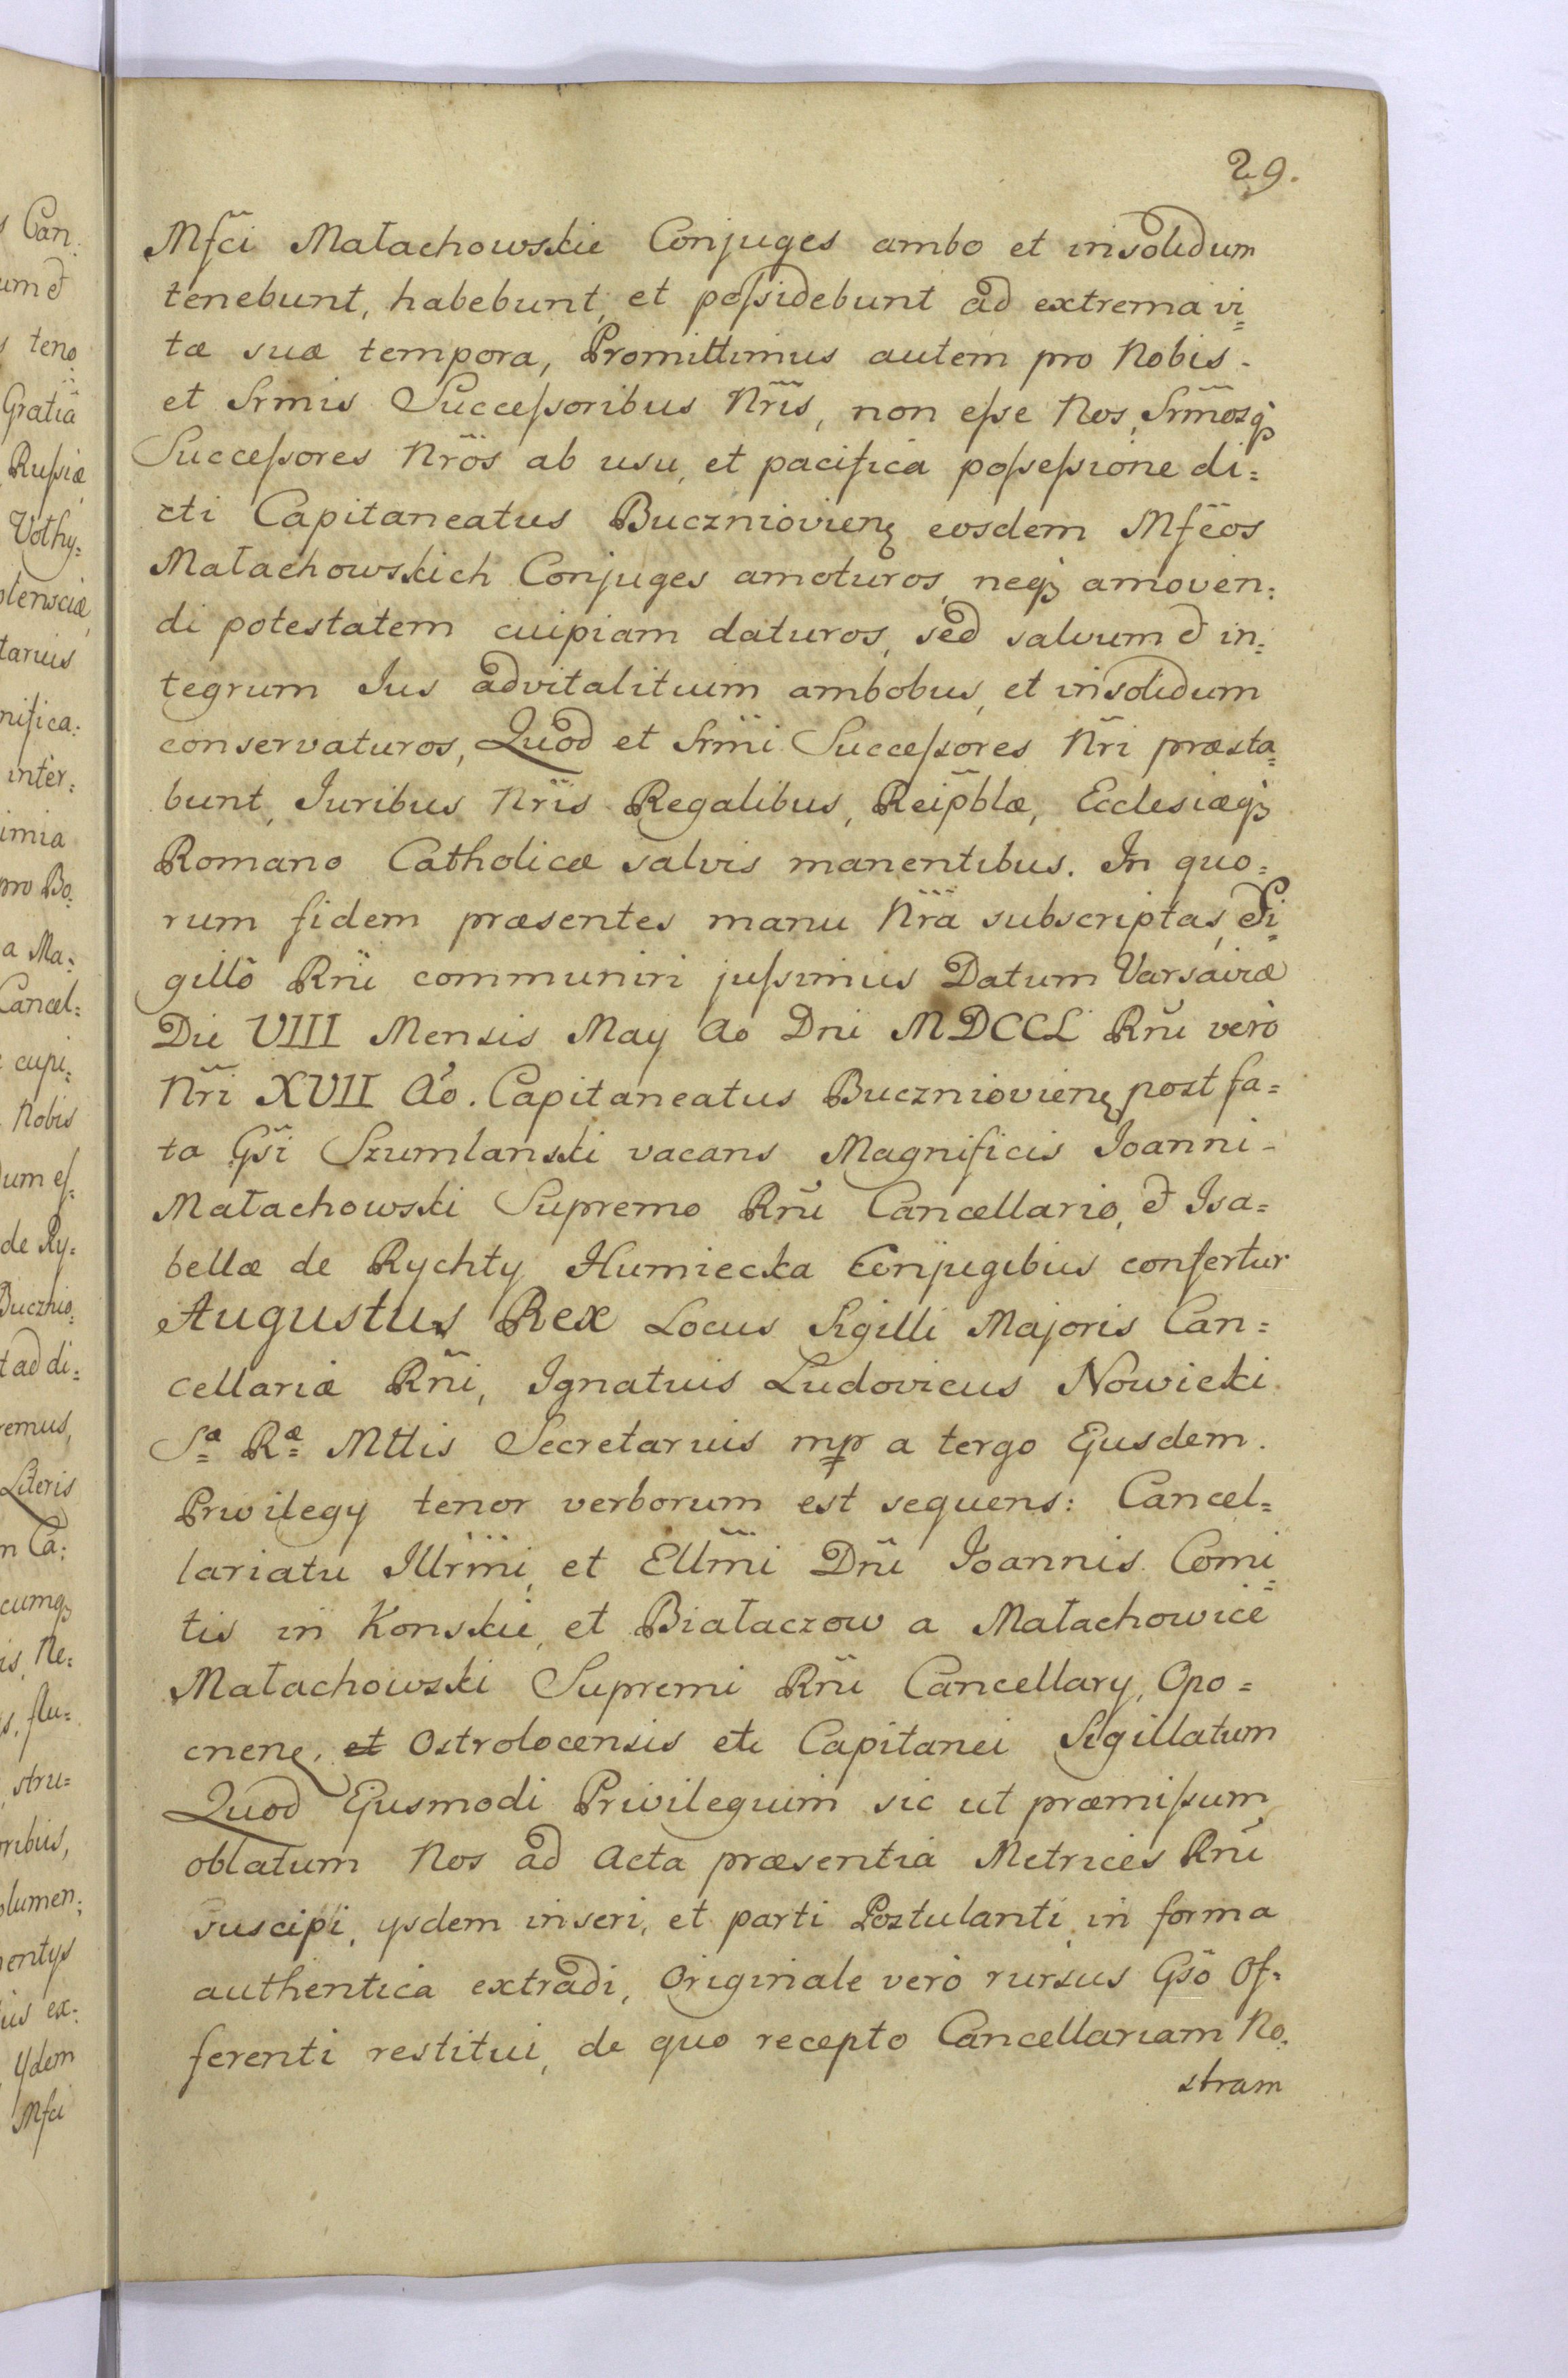 29.
Mſci Małachowskie Conjuges ambo et insolidum
tenebunt, habebunt, et poſsidebunt ad extrema vi=
tæ suæ tempora, Promittimus autem pro Nobis
et Srmis Succeſsoribus Nr̃is, non eſse Nos, Srm̃osq̃
Succeſsores Nr̃os ab usu, et pacifica poſseſsione di=
cti Capitaneatus Buczniovieñ eosdem Mſc̃os
Małachowskich Conjuges amoturos, neq̃ amoven=
di potestatem cuipiam daturos, sed salvum & in=
tegrum Jus advitalitium ambobus, et insolidum
conservaturos, Quod et Srm̃i Succeſsores Nr̃i præsta=
bunt, Juribus Nr̃is Regalibus, Reip̃blæ, Ecclesiæq̃
Romano Catholicæ salvis manentibus. In quo=
rum fidem præsentes manu Nr̃a subscriptas, Si=
gillô Rñi communiri juſsimus Datum Varsaviæ
Die VIII Mensis May Ao Dni MDCCL Rñi verò
Nr̃i XVII Ao. Capitaneatus Buczniovieñ post fa=
ta Gs̃i Szumlanski vacans Magnificis Joanni
Małachowski Supremo Rñi Cancellario, & Isa=
bellæ de Rychty Humiecka Conjugibus confertur
Augustus Rex Locus Sigilli Majoris Can=
cellariæ Rñi, Ignatius Ludovicus Nowicki
Sæ Ræ Mttis Secretarius mp a tergo Ejusdem
Privilegy tenor verborum est sequens: Cancel=
lariatu Illrm̃i, et Ellm̃i Dñi Joannis Comi=
tis in Konskie, et Białaczow a Małachowice
Małachowski Supremi Rñi Cancellary, Opo=
cneñ, et Ostrolocensis etc Capitanei Sigillatum
Quod Ejusmodi Privilegium sic ut præmiſsum
oblatum Nos ad Acta præsentia Metrices Rñi
suscipi, ysdem inseri, et parti Postulanti, in forma
authentica extradi, Originale verò rursus Gs̃o Of=
ferenti restitui, de quo recepto Cancellariam No=
stram